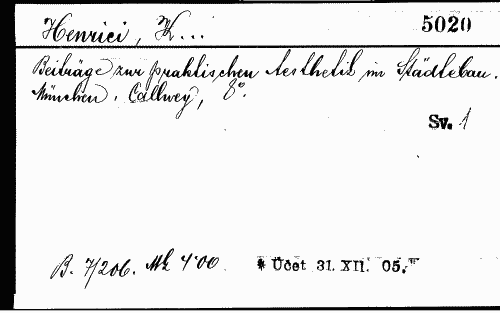 Henrici, K... 5020
Beiträge zur praktischen Aesthetik im Städtebau.
München. Callwey, 8°.
Sv. 1
B. 7/206. Mk 4'00 * Účet 31. XII. 05."